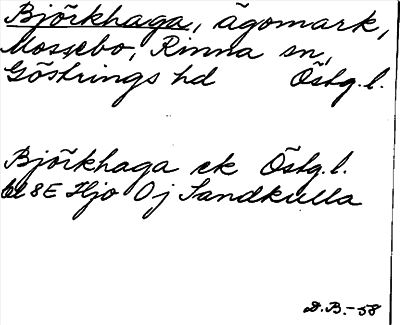 Björkhaga, ägomark,
Mossebo, Rinna sn,
Göstrings hd Östg.l.
Björkhaga ek Östg.l.
bl 8E Hjo 0j Sandkulla
D.B.-58